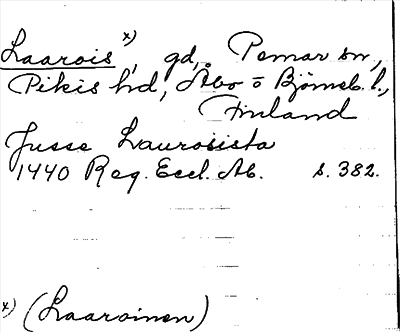 Laarois x), gd, Pemar sn,
Pikis hd, Åbo o Björneb. l.,
Finland
Jusse Laurosista
1440 Reg. Eccl. Ab. s. 382.
x) (Laaroinen)